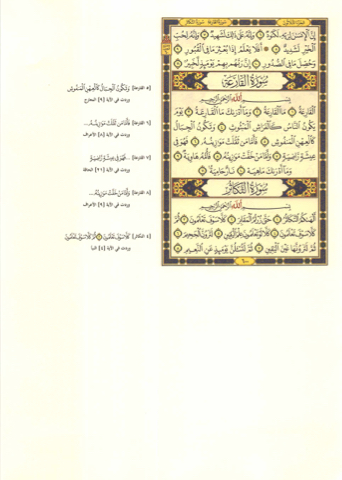 إِنَّ الْإِنسَانَ لِرَبِّهِ لَكَنُودٌ ٦ وَإِنَّهُ عَلَىٰ ذَٰلِكَ لَشَهِيدٌ ٧ وَإِنَّهُ لِحُبِّ
الْخَيْرِ لَشَدِيدٌ ٨ ۞ أَفَلَا يَعْلَمُ إِذَا بُعْثِرَ مَا فِي الْقُبُورِ ٩
وَحُصِّلَ مَا فِي الصُّدُورِ ١٠ إِنَّ رَبَّهُم بِهِمْ يَوْمَئِذٍ لَّخَبِيرٌ ١١
سُورَةُ الْقَارِعَةِ
بِسْمِ اللَّهِ الرَّحْمَٰنِ الرَّحِيمِ
الْقَارِعَةُ ١ مَا الْقَارِعَةُ ٢ وَمَا أَدْرَاكَ مَا الْقَارِعَةُ ٣ يَوْمَ
يَكُونُ النَّاسُ كَالْفَرَاشِ الْمَبْثُوثِ ٤ وَتَكُونُ الْجِبَالُ
كَالْعِهْنِ الْمَنفُوشِ ٥ فَأَمَّا مَن ثَقُلَتْ مَوَازِينُهُ ٦ فَهُوَ فِي
عِيشَةٍ رَّاضِيَةٍ ٧ وَأَمَّا مَنْ خَفَّتْ مَوَازِينُهُ ٨ فَأُمُّهُ هَاوِيَةٌ ٩
وَمَا أَدْرَاكَ مَا هِيَهْ ١٠ نَارٌ حَامِيَةٌ ١١
سُورَةُ التَّكَاثُرِ
بِسْمِ اللَّهِ الرَّحْمَٰنِ الرَّحِيمِ
أَلْهَاكُمُ التَّكَاثُرُ ١ حَتَّىٰ زُرْتُمُ الْمَقَابِرَ ٢ كَلَّا سَوْفَ تَعْلَمُونَ ٣ ثُمَّ
كَلَّا سَوْفَ تَعْلَمُونَ ٤ كَلَّا لَوْ تَعْلَمُونَ عِلْمَ الْيَقِينِ ٥ لَتَرَوُنَّ الْجَحِيمَ ٦
ثُمَّ لَتَرَوُنَّهَا عَيْنَ الْيَقِينِ ٧ ثُمَّ لَتُسْأَلُنَّ يَوْمَئِذٍ عَنِ النَّعِيمِ ٨
٦٠٠
[٥ القارعة] وَتَكُونُ الْجِبَالُ كَالْعِهْنِ الْمَنفُوشِ
وردت في الآية [٩] المعارج
[٦ القارعة] فَأَمَّا مَن ثَقُلَتْ مَوَازِينُهُ...
وردت في الآية [٨] الأعراف
[٧ القارعة] فَهُوَ فِي عِيشَةٍ رَّاضِيَةٍ
وردت في الآية [٢١] الحاقة
[٨ القارعة] وَأَمَّا مَنْ خَفَّتْ مَوَازِينُهُ...
وردت في الآية [٩] الأعراف
[٤ التكاثر] كَلَّا سَوْفَ تَعْلَمُونَ ٣ ثُمَّ كَلَّا سَوْفَ تَعْلَمُونَ
وردت في الآية [٤] النبأ